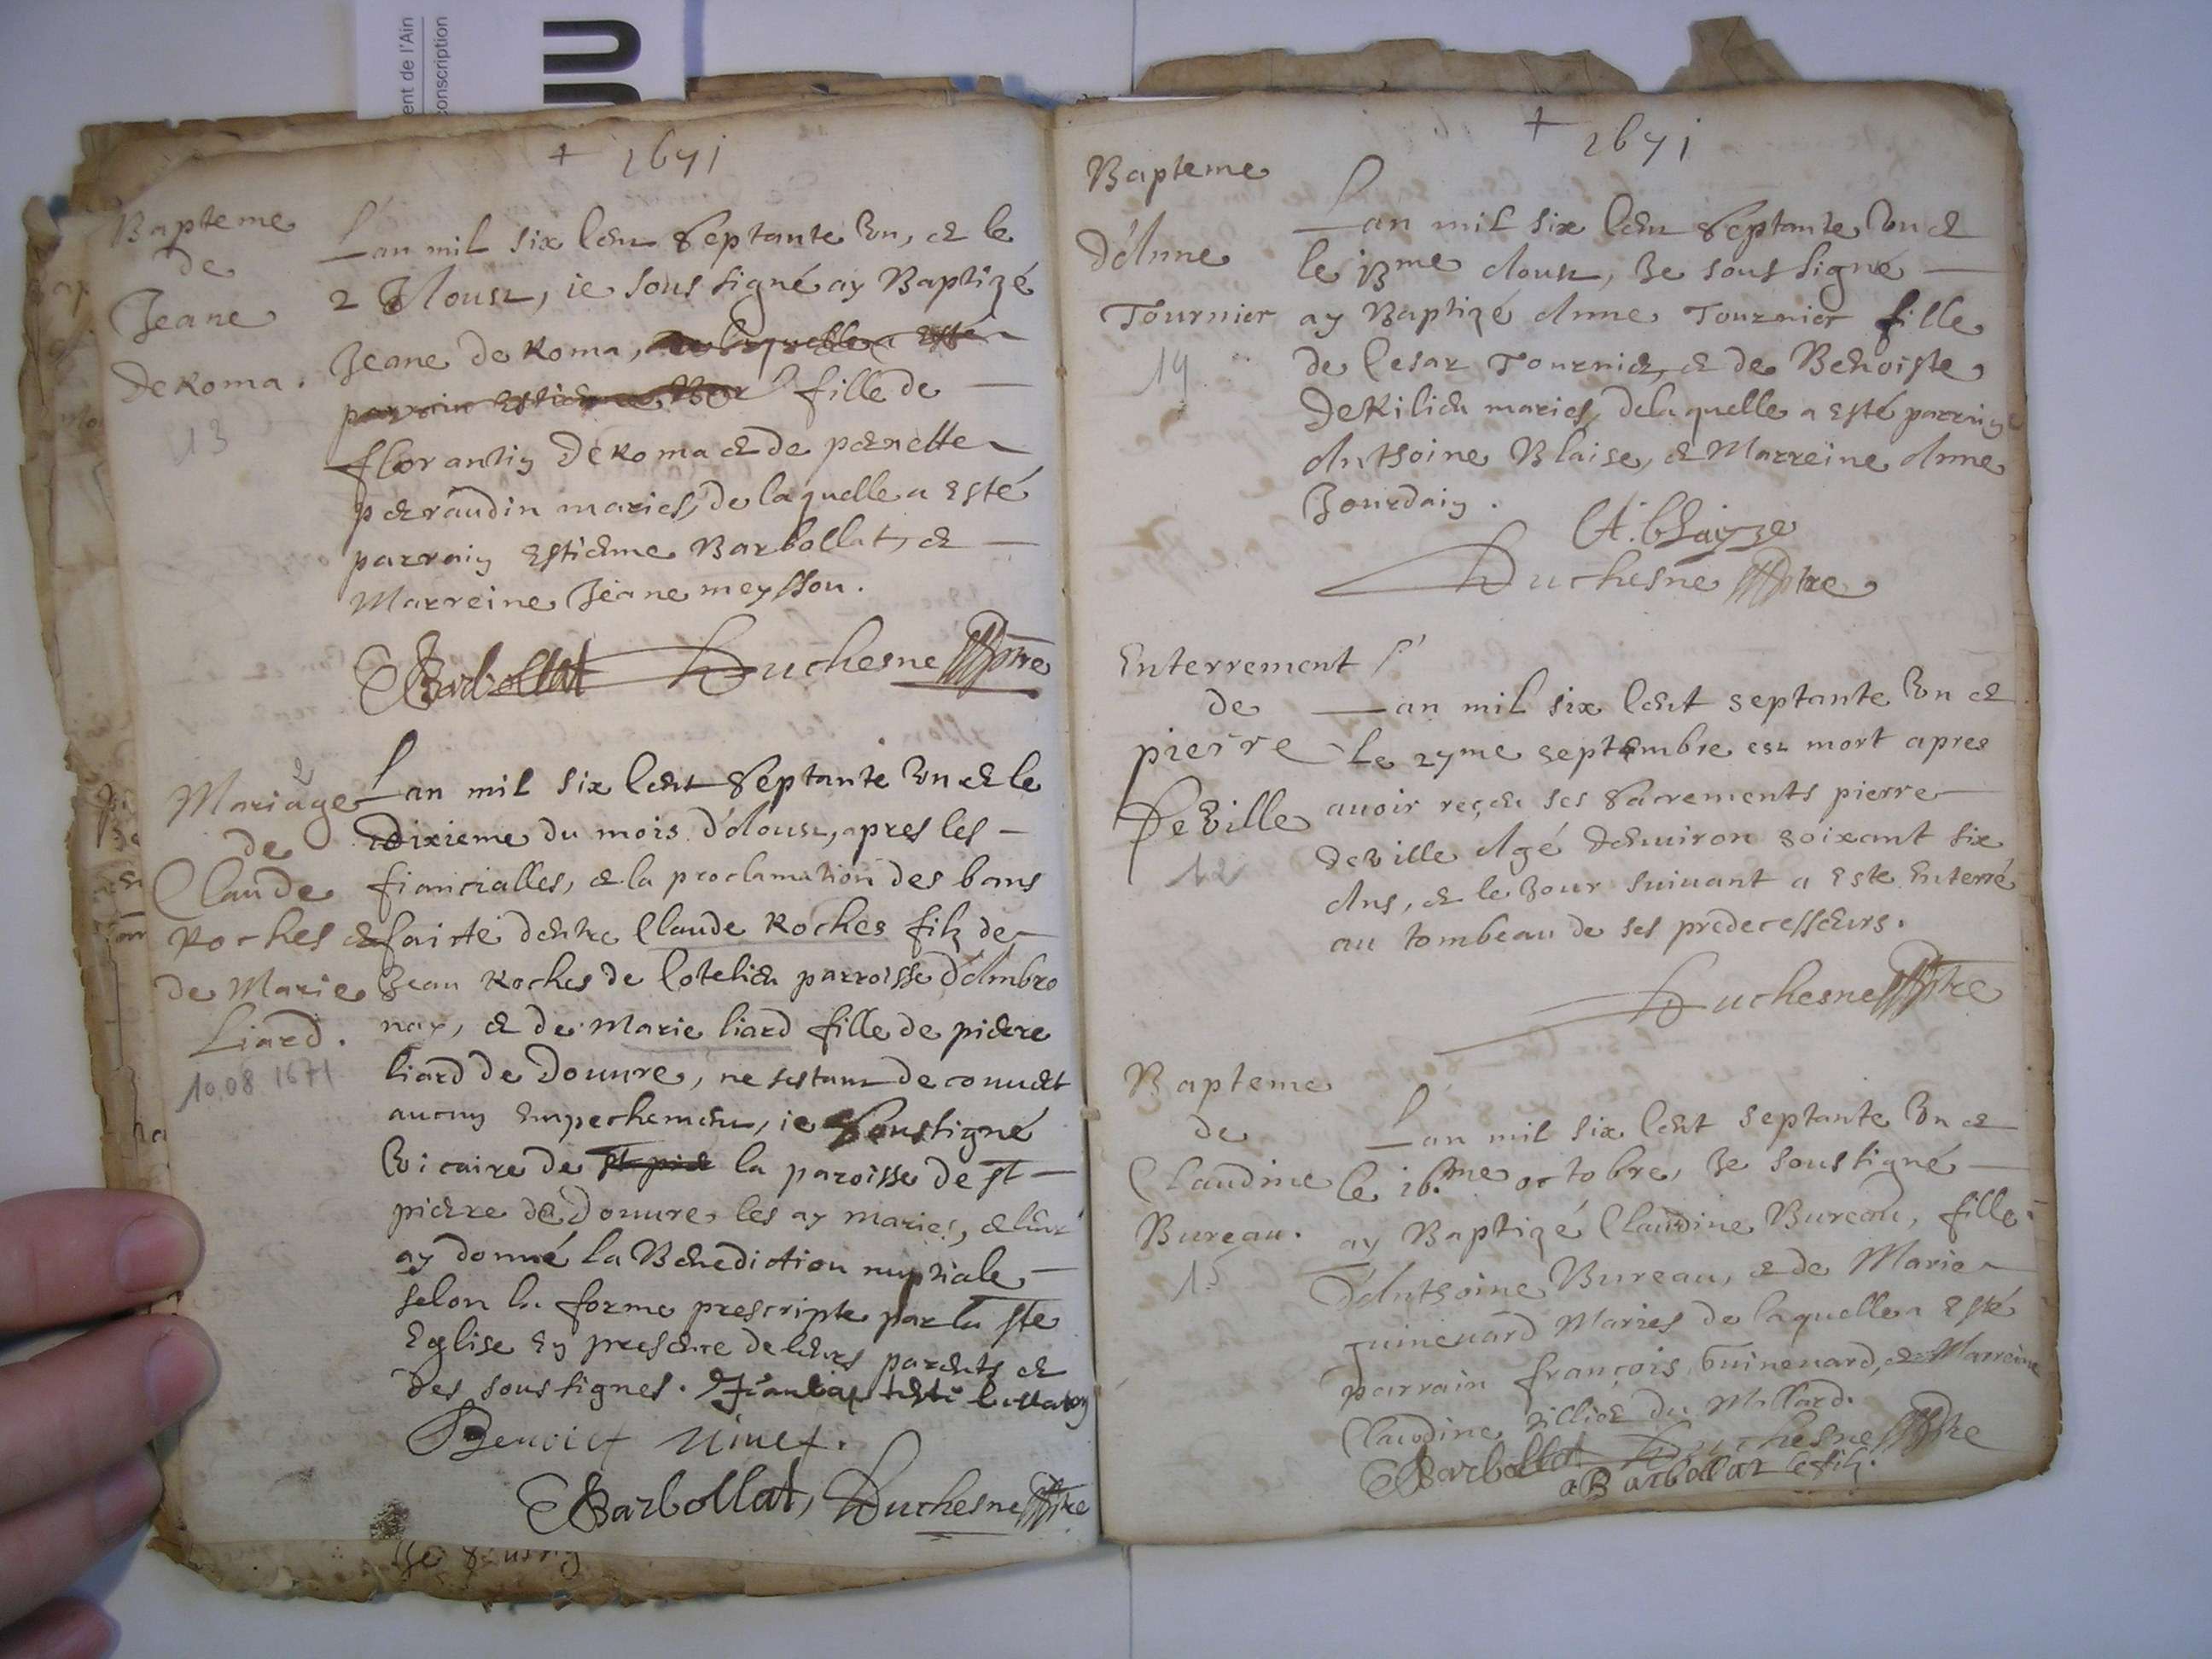 ent de l'Ain
conscription
+ 1671
Bapteme
de
Jeane
De Roma.
13
Lan mil six Cent Septante Un, et le
2 Aoust, ie sous signé ay Baptizé
Jeane de Roma, de laquelle a Esté
parrain Estienne Bar fille de
florantin De Roma et de pernette
perraudin mariés, de laquelle a Esté
parrain Estienne Barbollat, et
Marreine Jeane meysson.
Barbollat Duchesne ptre
Mariage
2
de
Claude
Roches et
de Marie
Liard.
10.08 1671
Lan mil six Cent Septante Un et le
Dixieme du mois d'Aoust, apres les
fiancialles, et la proclamation des bans
faicte dentre Claude Roches filz de
Jean Roches de Cotelieu parroisse d'Ambro
nay, et de Marie liard fille de pierre
liard de Douure, ne sestant decouuert
aucun Empechement, ie Soustigné
Vicaire de St pier la paroisse de St
pierre de Douure les ay mariés, et leur
ay donné la Benediction nuptiale
selon la forme prescripte par la Ste
Eglise En presence de leurs parents et
des soussignes.
Benoict Ninet.
Barbollat, Duchesne ptre
+ 1671
Bapteme
d'Anne
Tournier
14
Lan mil six Cent Septante Un et
le 13me Aoust, Je sous signé
ay Baptizé Anne Tournier fille
de Cesar Tournier, et de Benoiste
DeRilieu mariés, delaquelle a Esté parrain
Anthoine Blaise, et Marreine Anne
Jourdain.
A. blaize
Duchesne ptre
Enterrement
de
pierre
DeVille
12
Lan mil six Cent septante Un et
le 27me septembre est mort apres
auoir reçeu ses Sacrements pierre
deville Agé denuiron soixant six
Ans, et le Jour suiuant a Este Enterré
au tombeau de ses predecesseurs.
Duchesne ptre
Bapteme
de
Claudine
Bureau.
15
Lan mil six Cent septante Un et
le 16.me octobre, Je soustigné
ay Baptizé Claudine Bureau, fille
d'Anthoine Bureau, et de Marie
guineuard Mariés de laquelle a Esté
parrain françois Guineuard, et Marreine
Claudine du Mollard.
Barbollat Duchesne ptre
a Barbollat le filz.